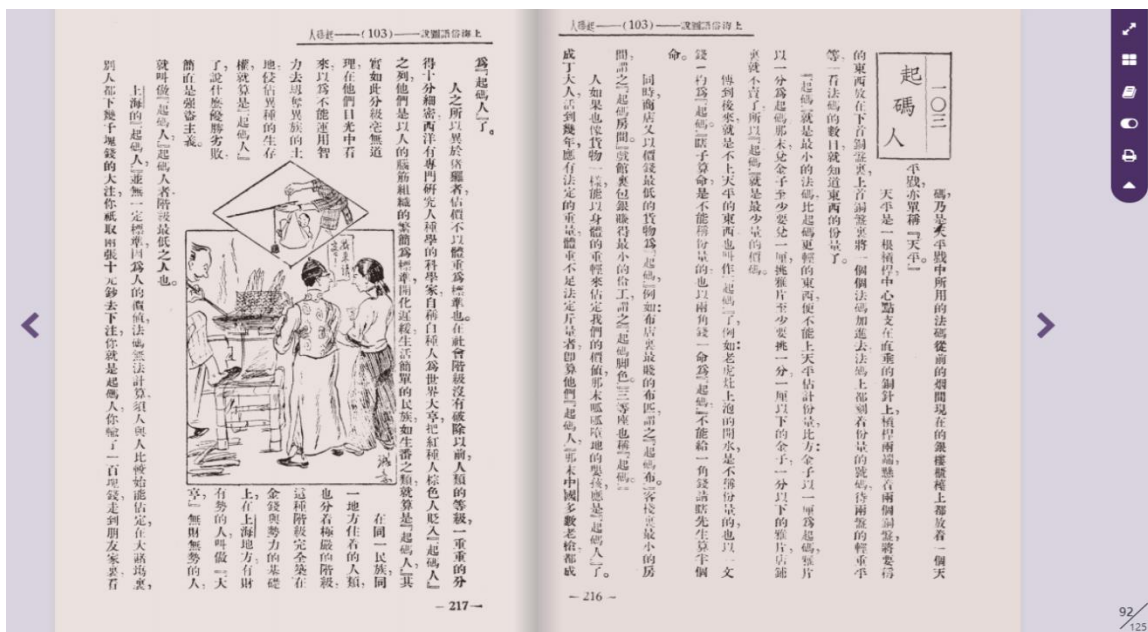 上海俗語圖說——(103)——起碼人
一〇三
起碼人
碼乃是天平戥中所用的法碼從前的烟間現在的銀樓櫃檯上都放着一個天
平戥，亦單稱『天平。』
天平是一根槓桿中心點支在直垂的銅針上，槓桿兩端懸着兩個銅盤，將要稱
的東西放在下首銅盤裏上首銅盤裏將一個個法碼加進去法碼上都刻着份量的號碼，待兩盤的輕重平
等，一看法碼的數目就知道東西的份量了。
『起碼』就是最小的法碼比起碼更輕的東西便不能上天平估計份量，比方：金子以一厘爲起碼，鴉片
以一分爲起碼那末兌金子至少要兌一厘，挑鴉片至少要挑一分，一厘以下的金子，一分以下的鴉片，店舖
裏就不賣了所以『起碼』就是最少量的價碼。
傳到後來，就是不上天平的東西也叫作『起碼』了，例如：老虎灶上泡的開水，是不稱份量的，也以一文
錢一杓爲『起碼』瞎子算命，是不能稱份量的也以兩角錢一命爲『起碼』不能給一角錢請瞎先生算半個
命。
同時商店又以價錢最低的貨物爲『起碼』例如：布店裏最賤的布匹，謂之『起碼布。』客棧裏最小的房
間，謂之『起碼房間。』戲館裏包銀賺得最小的份工，謂之『起碼脚色。』三等座也稱『起碼。』
人如果也像貨物一樣，能以身體的重輕來估定我們的價值，那末呱呱墮地的嬰孩應是『起碼人』了。
成丁大人，活到幾年，應有法定的重量，體重不足法定斤量者，即算他們『起碼人』那末中國多數老槍都成
— 216 —
上海俗語圖說——(103)——起碼人
爲『起碼人』了。
人之所以異於猪玀者，估價不以體重爲標準也。在社會階級沒有破除以前，人類的等級，一重重的分
得十分細密，西洋有專門研究人種學的科學家，自稱白種人爲世界大亨，把紅種人棕色人貶入『起碼人』
之列，他們是以人的腦筋組織的繁簡爲標準，開化遲緩，生活簡單的民族，如生番之類，就算是『起碼人』其
實如此分級，毫無道
理，在他們目光中看
來，以爲不能運用智
力去刧奪異族的土
地，侵佔異種的生存
權，就算是『起碼人』
了，說什麼優勝劣敗，
簡直是強盜主義。
在同一民族，同
一地方住着的人類，
也分着極嚴的階級，
這種階級，完全築在
金錢與勢力的基礎
上，在上海地方有財
有勢的人，叫做『大
亨，』無財無勢的人，
就叫做『起碼人。』起碼人者，階級最低之人也。
上海的『起碼人，』並無一定標準，因爲人的價值，法碼無法計算，須人與人比較，始能估定，在大賭場裏，
別人都下幾千塊錢的大注，你祇取兩張十元鈔去下注，你就是起碼人，你輸了一百現錢，走到朋友家裏，看
— 217 —
92/125